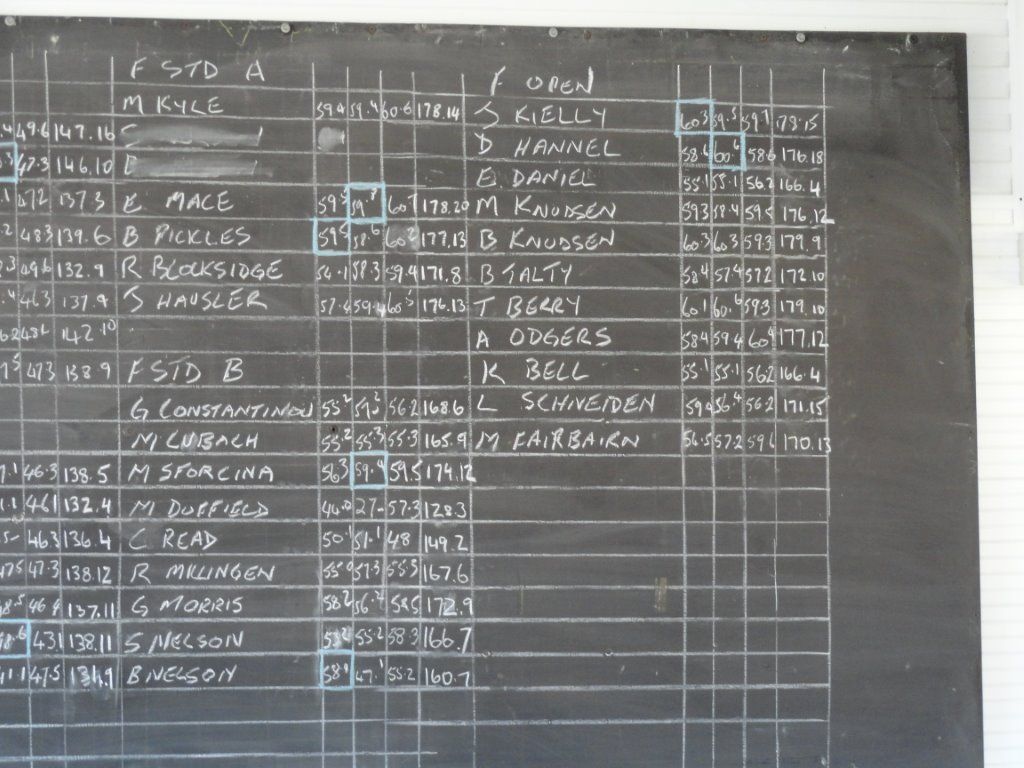 F STD A
F OPEN
M KYLE 59.4 59.4 60.6 178.14
J KIELLY 60.3 59.5 59.7
49.6 147.16
D HANNEL 58.6 60.6 58.6 176.18
47.3 146.10
E DANIEL 55.1 55.1 56.2 166.4
137.3 E MACE 59.5 59.8 60.7 178.20
M KNUDSEN 59.3 58.4 59.5 176.12
48.3 139.6 B PICKLES 59.5 58.6 60.2 177.13
B KNUDSEN 60.3 60.3 59.3 179.9
49.6 132.9 R BLOCKSIDGE 54.1 58.3 59.4 171.8
B TALTY 58.4 57.4 57.2 172.10
46.3 137.9 J HAUSLER 57.4 59.4 60.5 176.13
T BERRY 60.1 60.6 59.3 179.10
142.10
A ODGERS 58.4 59.4 60.4 177.12
47.3 138.9 F STD B
K BELL 55.1 55.1 56.2 166.4
G CONSTANTINOU 55.2 57.2 56.2 168.6
L SCHNEIDEN 56.4 56.2 171.15
M CUBACH 55.2 55.3 55.3 165.9
M FAIRBAIRN 56.5 57.2 59.6 170.13
46.3 138.5 M SFORCINA 56.3 59.4 59.5 174.12
46.1 132.4 M DUFFIELD 57.3 128.3
46.3 136.4 C READ 50.1 51.1 48 149.2
47.3 138.12 R MILLINGEN 55.0 57.3 55.5 167.6
137.11 G MORRIS 58.2 56.2 58.5 172.9
43.1 138.11 S NELSON 55.2 58.3 166.7
47.5 B NELSON 58.4 47.1 55.2 160.7